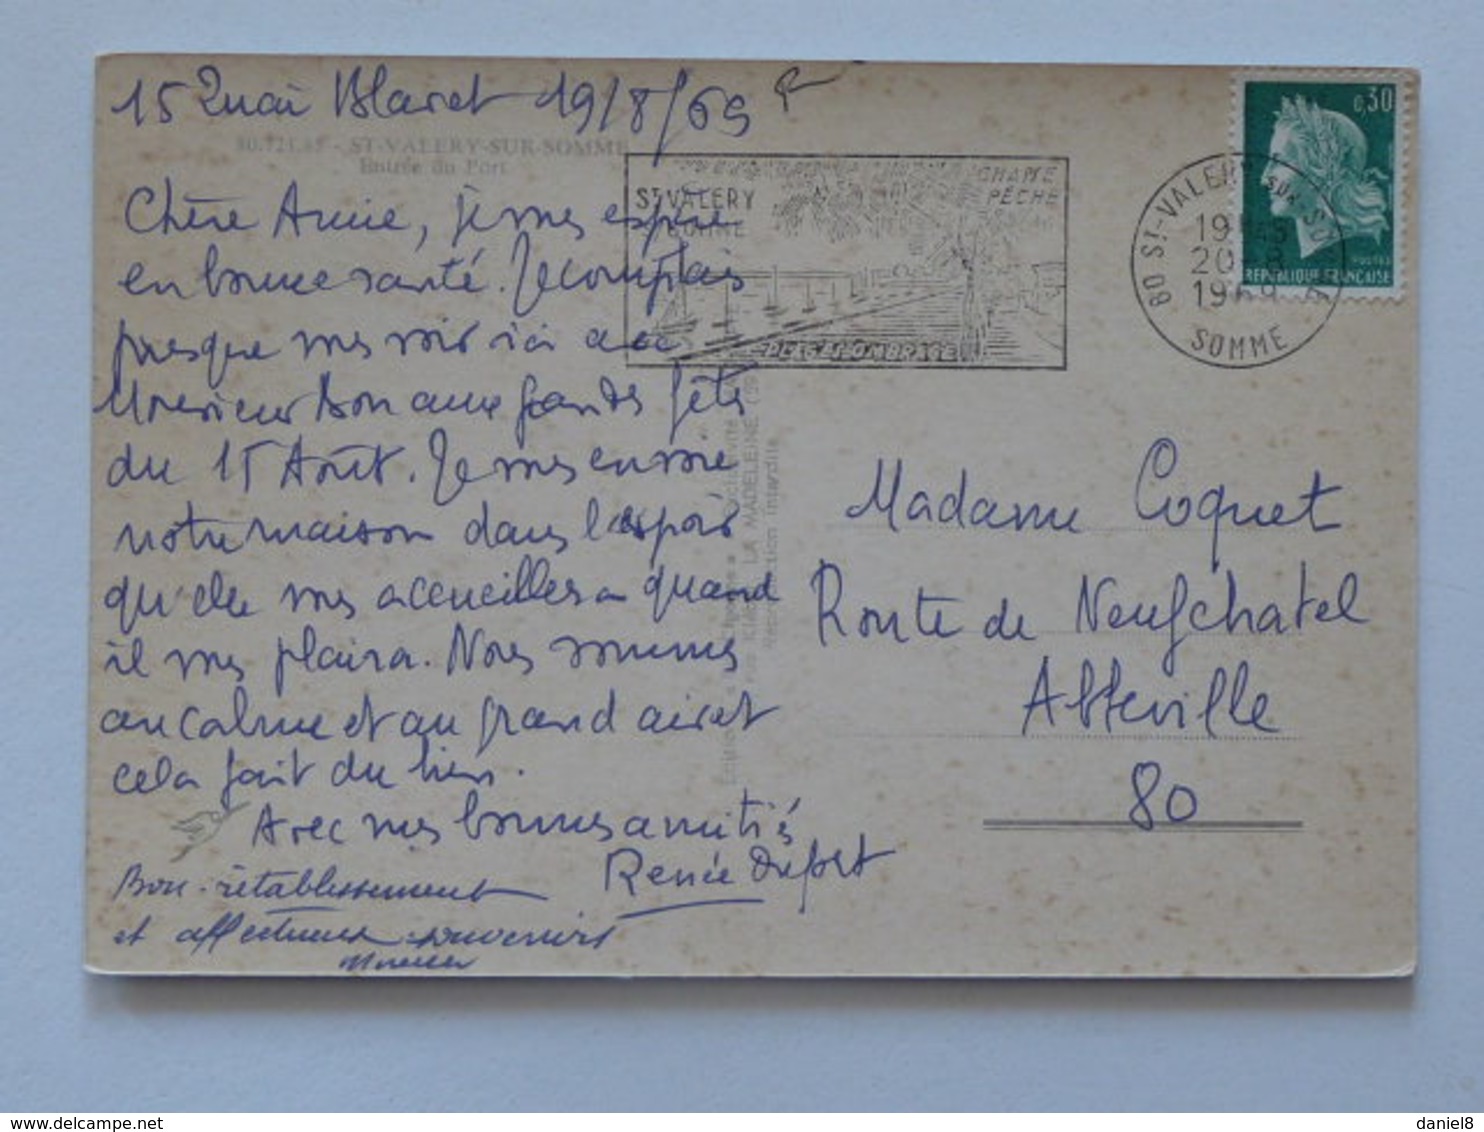 15 Quai Blavet 19/8/69
80.721.85 - ST-VALERY-SUR-SOMME
Entrée du Port
Chère Amie, je vous espère
en bonne santé. Je comptais
presque vous voir ici avec
Monsieur Bon aux grandes fêtes
du 15 Août. Je vous envoie
notre maison dans l'espoir
qu'elle vous accueillera quand
il vous plaira. Nous sommes
au calme et au grand air et
cela fait du bien.
Avec mes bonnes amitiés
Renée Duport
Bon rétablissement
et affectueux souvenirs
ST VALERY
SOMME
CHASSE
PÊCHE
PLAGE OMBRAGEE
80 ST-VALERY SUR SOMME
19H15
20-8
1969
SOMME
0,30
POSTES
REPUBLIQUE FRANÇAISE
LA MADELEINE
Reproduction interdite
Madame Coquet
Route de Neufchatel
Abbeville
80
daniel8